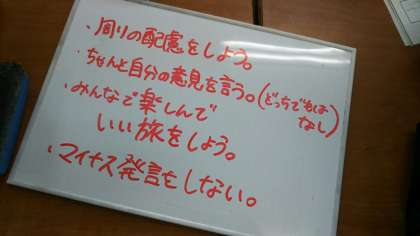 ・周りの配慮をしよう。
・ちゃんと自分の意見を言う。(どっちでもはなし)
・みんなで楽しんで
いい旅をしよう。
・マイナス発言をしない。